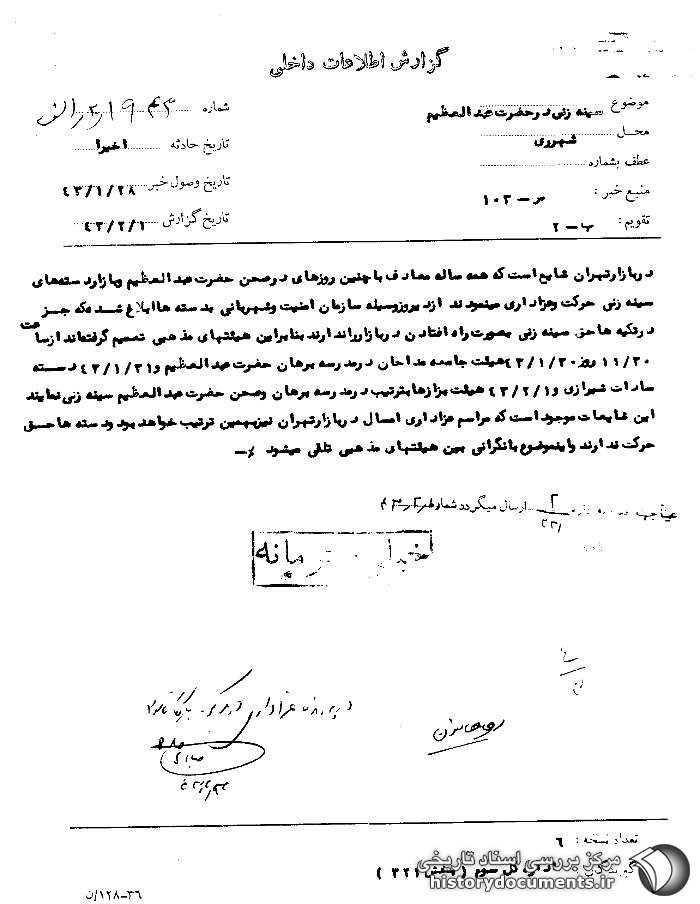 گزارش اطلاعات داخلی
موضوع سینه زنی در حضرت عبدالعظیم
محل شهرری
عطف بشماره
منبع خبر: س-۱۰۲
تقویم: ب-۲
شماره
تاریخ حادثه اخیرا
تاریخ وصول خبر ۴۳/۱/۲۸
تاریخ گزارش ۴۳/۲/۱
در بازار تهران شایع است که همه ساله معادف با چنین روزهای در صحن حضرت عبدالعظیم و بازار دسته‌های
سینه زنی حرکت و عزاداری مینمودند از دیروز وسیله سازمان امنیت و شهربانی بدسته ها ابلاغ شده که جز
در تکیه ها حق سینه زنی بصورت راه افتادن در بازار را ندارند بنابراین هیئتهای مذهبی تصمیم گرفته‌اند از ساعت
۱۱/۳۰ روز ۴۳/۱/۳۰ هیئت جامعه مداحان در مدرسه برهان حضرت عبدالعظیم و ۴۳/۱/۳۱ دسته
سادات شیرازی و ۴۳/۲/۱ هیئت بزازها بترتیب در مدرسه برهان وصحن حضرت عبدالعظیم سینه زنی نمایند
این شایعات موجود است که مراسم عزاداری امسال در بازار تهران نیز بهمین ترتیب خواهد بود و دسته ها حق
حرکت ندارند و اینموضوع با نگرانی بین هیئتهای مذهبی تلقی میشود
ارسال میگردد
تعداد نسخه: ۶
اداره کل سوم (بخش ۳۲۱)
۱۲۸-۳۶/ن
مرکز بررسی اسناد تاریخی
historydocuments.ir